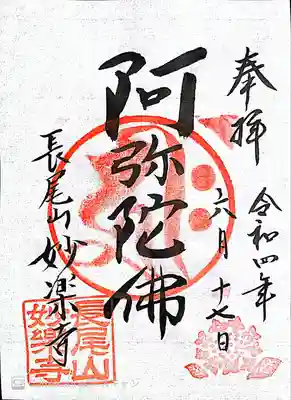 奉拝
令和四年
六月
十七日
阿弥陀佛
長尾山妙楽寺
長尾山
妙樂寺